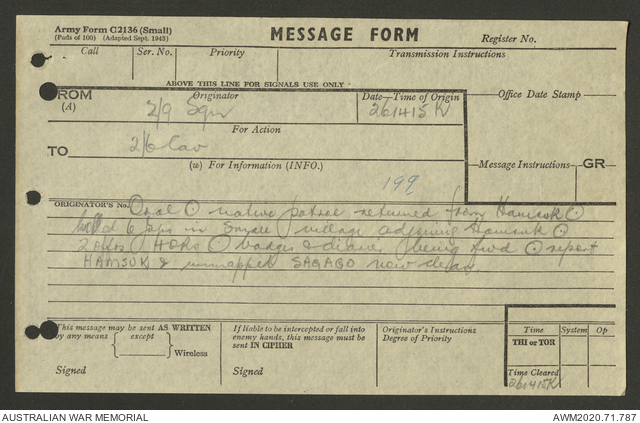 Army Form C2136 (Small)
(Pads of 100) (Adapted Sept. 1943)
MESSAGE FORM
Register No.
Call Ser. No. Priority Transmission Instructions
ABOVE THIS LINE FOR SIGNALS USE ONLY
FROM (A) Originator Date—Time of Origin Office Date Stamp
2/9 Sqn 261415K
For Action
TO 2/6 Cav
(w) For Information (INFO.) Message Instructions GR
199
ORIGINATOR'S No. Oral ⊙ native patrol returned from Hamsuk ⊙
killed 6 Japs in small village adjoining Hamsuk ⊙
2 Offrs 4 ORs ⊙ badges & diaries being fwd ⊙ report
HAMSUK & unmapped SAGAGO now clear
This message may be sent AS WRITTEN
by any means except
Wireless
Signed
If liable to be intercepted or fall into
enemy hands, this message must be
sent IN CIPHER
Signed
Originator's Instructions
Degree of Priority
Time System Op
THI or TOR
Time Cleared
261415K
AUSTRALIAN WAR MEMORIAL AWM2020.71.787